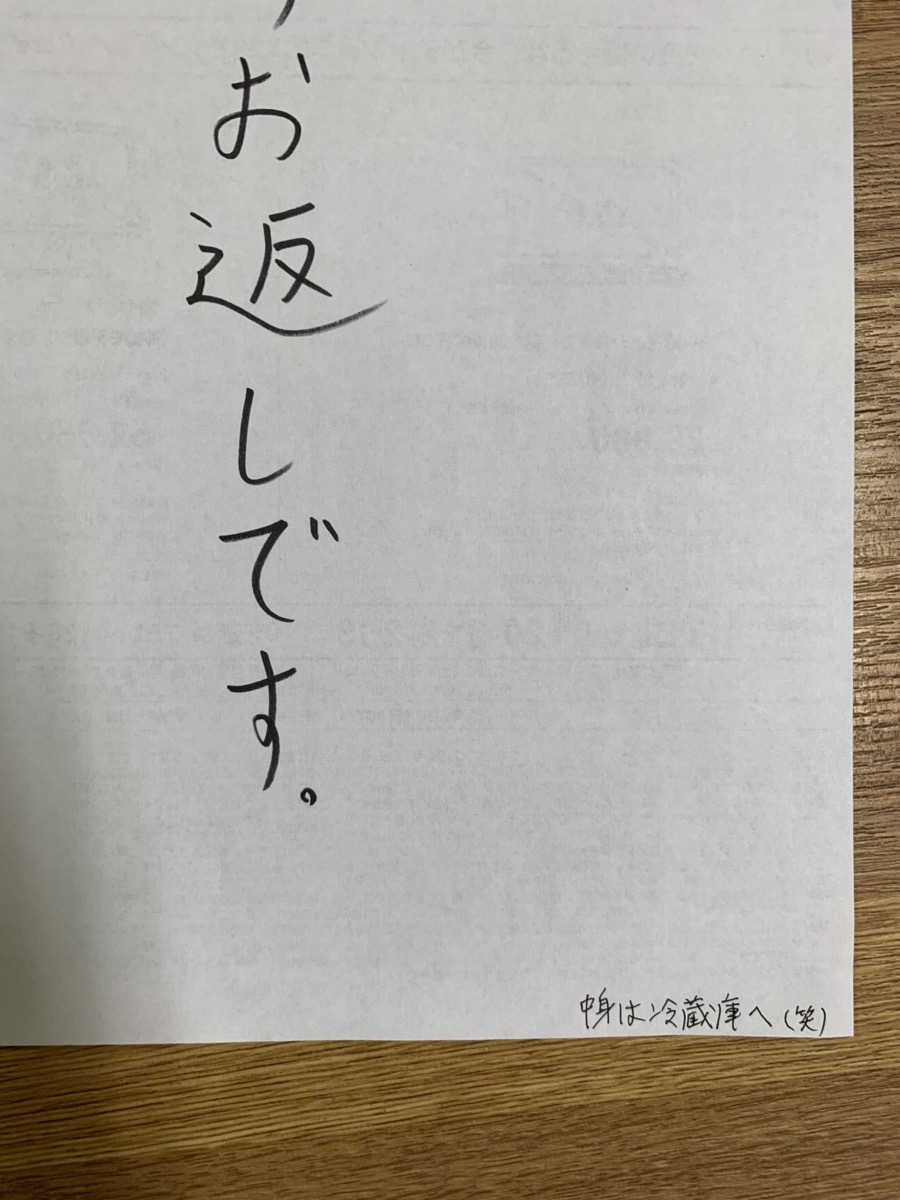 お返しです。
中身は冷蔵庫へ(笑)